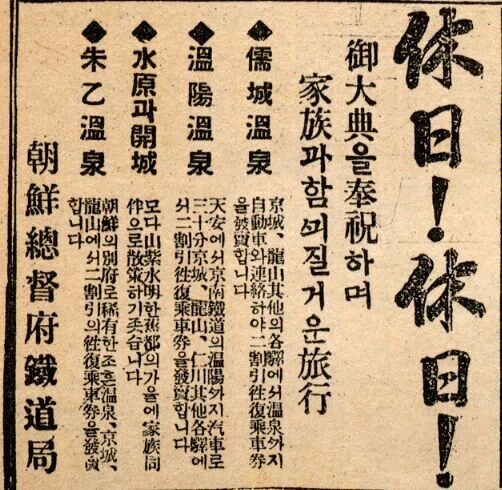 休日! 休日!
御大典을奉祝하며
家族과함ᄭᅴ질거운旅行
◆儒城溫泉
京城、龍山其他의各驛에서溫泉ᄭᅡ지
自動車와連絡하야二割引徃復乘車券
을發賣합니다
◆溫陽溫泉
天安에서京南鐵道의溫陽ᄭᅡ지汽車로
三十分京城、龍山、仁川其他各驛에
서二割引徃復乘車券을發賣합니다
◆水原과開城
모다山紫水明한舊都의가을에家族同
伴으로散策하기조습니다
◆朱乙溫泉
朝鮮의別府로稀有한조흔溫泉、京城、
龍山에서二割引의徃復乘車券을發賣
합니다
朝鮮總督府鐵道局